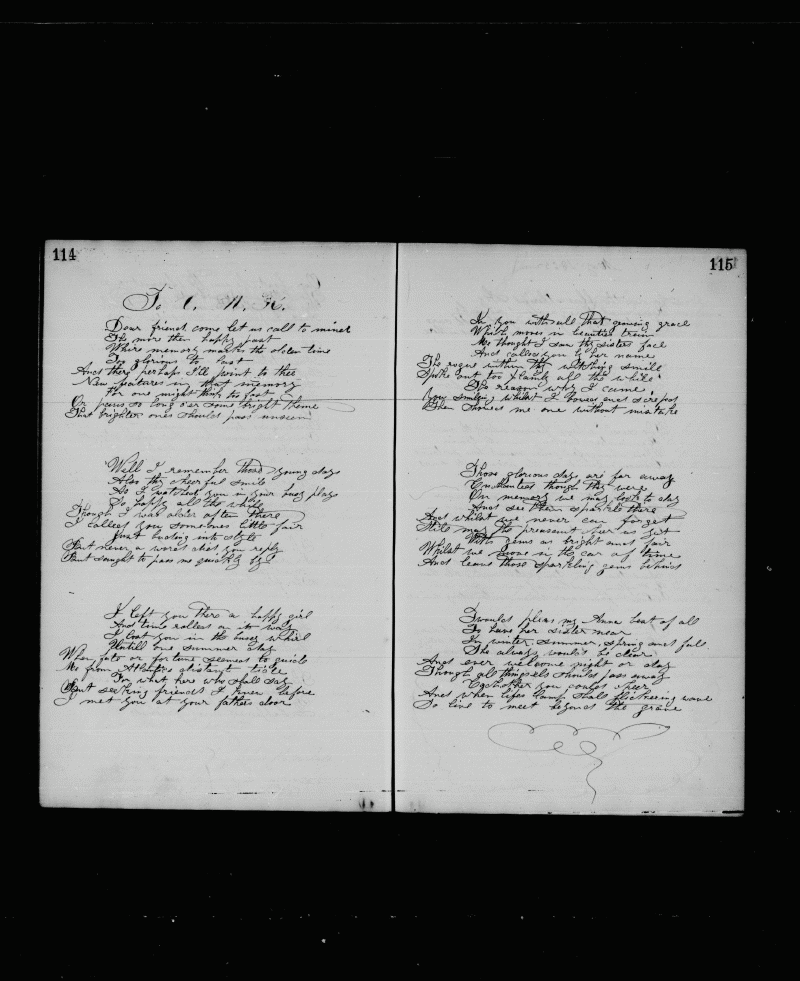 114
To C. N. H.
Dear friend come let us call to mind
The more then happy past
Where memory marks the olden time
Too glorious to last
And there perhaps I'll point to thee
New features in that memory
For one might then too fast
Or pass so long o'er some bright theme
That brighter ones should pass unseen
Well I remember those young days
Also thy cheerful smile
As I watched you in your busy plays
So happy all the while
Though I was older often there
I called you someones little fair
Just budding into style
But never a word did you reply
But sought to pass me quickly by
I left you there a happy girl
And time rolled on its way
I lost you in the busy whirl
Untill one summer day
When fate or fortune seemed to guide
Me from distant tide
For what here who shall say
But seeking friends I knew before
I met you at your fathers door
115
In you withall that grace
Which moves in beauties train
Me thought I saw thy sisters face
And called you by her name
The rogue within thy witching smile
Spoke out too plainly all the while
The reason why I came
You smiling whilst I bowed and scraped
Then me one without mistake
Those glorious days are far away
Enchanted though they were
On memory we may look to day
And see them sparkle there
And whilst we never can forget
Still may the present over us yet
With gems as bright and fair
Whilst we in the car of time
And leave those sparkling gems behind
Twould please my Anna best of all
To have her sister near
In winter, summer, spring and fall
She always would be dear
And ever welcome night or day
Though all things els should pass away
Eachother you could cheer
And when lifes lamp shall flickering wane
So live to meet beyond the grave